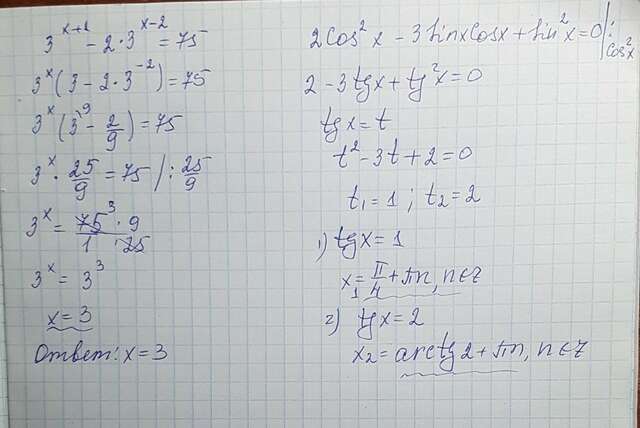 3^{x+1} - 2·3^{x-2} = 75
3^x (3 - 2·3^{-2}) = 75
3^x (3^{\9} - 2/9) = 75
3^x · 25/9 = 75 / : 25/9
3^x = 75^3 · 9 / 1 · 25
3^x = 3^3
x = 3
Ответ: x = 3
2cos²x - 3sinxcosx + sin²x = 0 | : cos²x
2 - 3tgx + tg²x = 0
tgx = t
t² - 3t + 2 = 0
t₁ = 1 ; t₂ = 2
1) tgx = 1
x₁ = π/4 + πn, n∈z
2) tgx = 2
x₂ = arctg2 + πn, n∈z